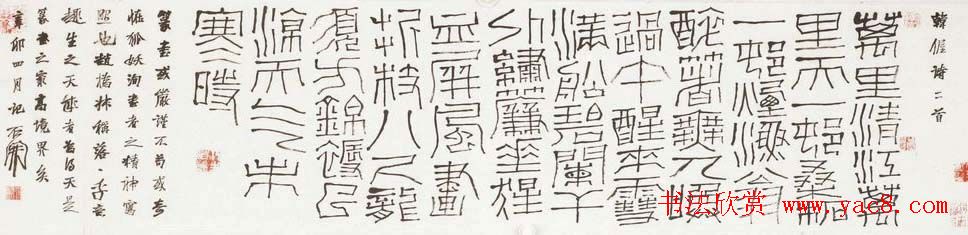 韓偓詩二首
萬里清江萬
里天一邨桑柘
一邨煙漁翁
醉著無人喚
過午醒來雪
滿船碧闌干
外繡簾垂猩
色屏風畫
折枝八尺龍
須方錦褥已
涼天气未
寒時
篆書或嚴謹不茍或奇
怪狐妖洵書者之精神寫
照也趙撝叔稱
趣生之天能者得天是
篆書之最高境界矣
辛卯四月記石開
书法欣赏
www.yac8.com